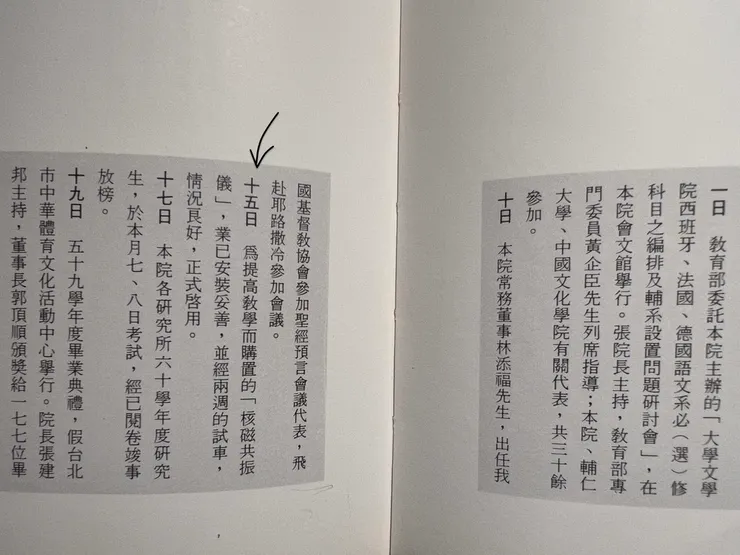 一日　教育部委託本院主辦的「大學文學
院西班牙、法國、德國語文系必（選）修
科目之編排及輔系設置問題研討會」，在
本院會文館舉行。張院長主持，教育部專
門委員黃企臣先生列席指導；本院、輔仁
大學、中國文化學院有關代表，共三十餘
參加。
十日　本院常務董事林添福先生，出任我
國基督教協會參加聖經預言會議代表，飛
赴耶路撒冷參加會議。
十五日　爲提高教學而購置的「核磁共振
儀」，業已安裝妥善，並經兩週的試車，
情況良好，正式啓用。
十七日　本院各研究所六十學年度研究
生，於本月七、八日考試，經已閱卷竣事
放榜。
十九日　五十九學年度畢業典禮，假台北
市中華體育文化活動中心舉行。院長張建
邦主持，董事長郭頂順頒獎給一七七位畢